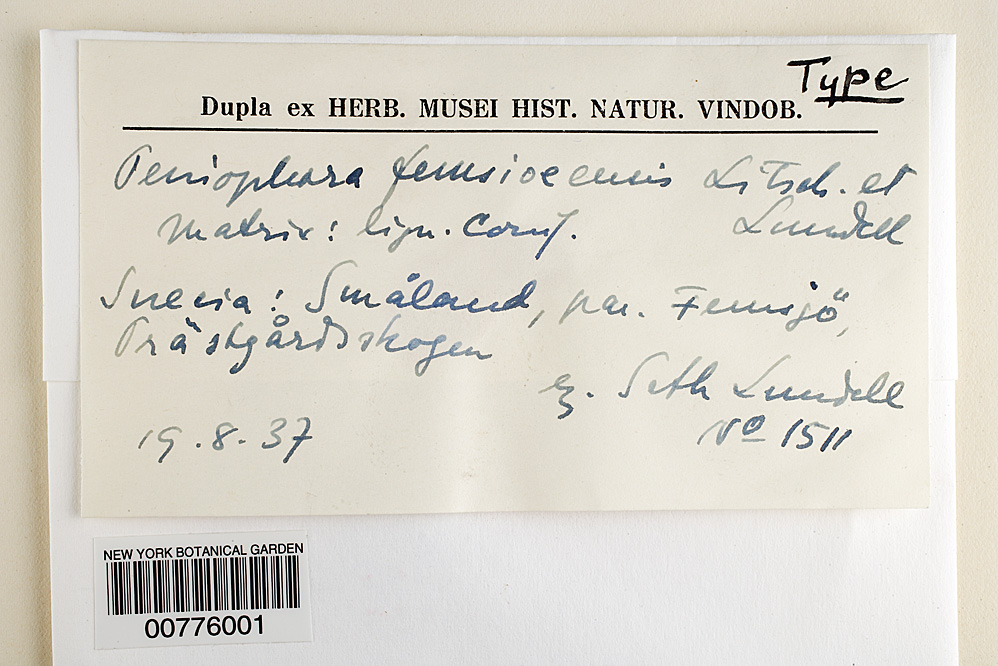 Type
Dupla ex HERB. MUSEI HIST. NATUR. VINDOB.
Peniophora femsioeensis Litsch. et
Matrix: lign. Conif. Lundell
Suecia: Småland, par. Femsjö,
Prästgårdsskogen
eg. Seth Lundell
19.8.37 No 1511
NEW YORK BOTANICAL GARDEN
00776001